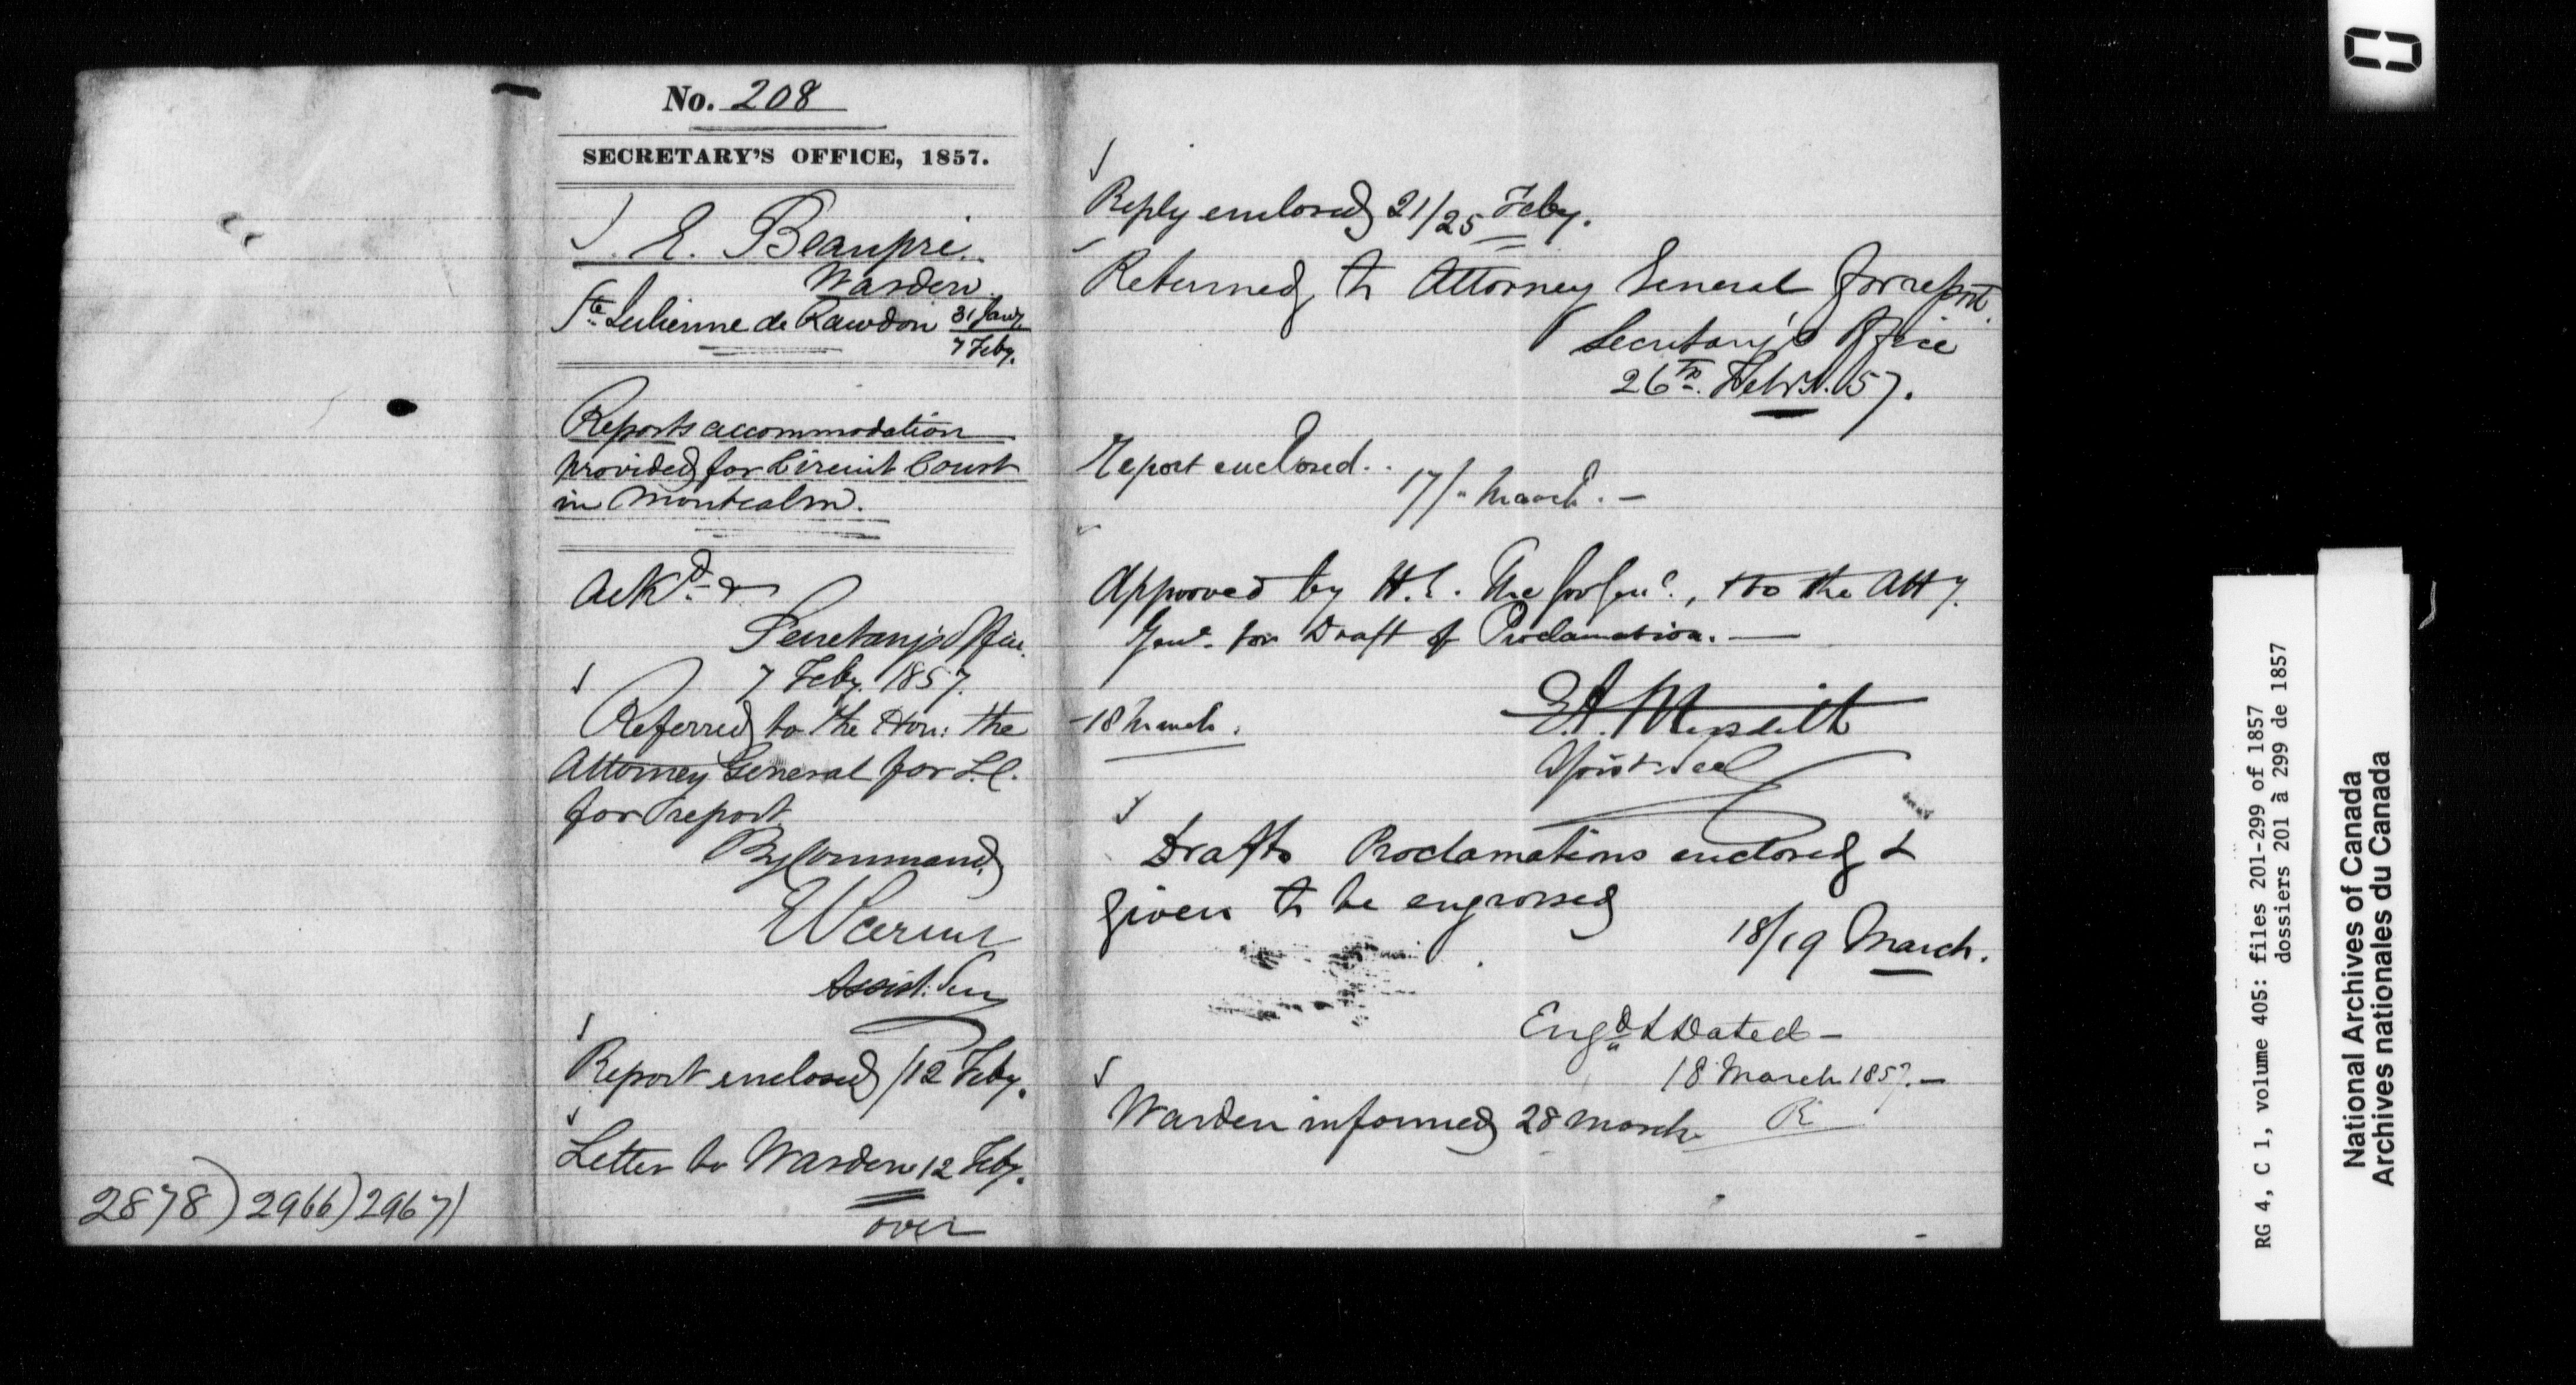 No. 208
SECRETARY'S OFFICE, 1857.
E. Beaupré
Warden
Ste Julienne de Rawdon 31 Jany
7 Feby.
Reports accommodation
provided for Circuit Court
in Montcalm.
Ackd. &
Secretary's Office
7 Feby. 1857.
Referred to the Hon: the
Attorney General for L.C.
for report
By Command
Assist. Secy
Report enclosed /12 Feby.
Letter to Warden 12 Feby.
over
2878) 2966) 2967/
Reply enclosed 21/25 Feby.
Returned to Attorney General for report.
Secretary's Office
26th. Feby. 57.
Report enclosed.. 17/" March. —
Approved by H.E. The Gov Genl., & to the Atty.
Genl. for Draft of Proclamation. —
18 March.
E.A. Meredith
Assist Sec
Drafts Proclamations enclosed &
given to be engrossed
18/19 March.
Engd. & Dated —
18 March 1857. —
Warden informed 28 March R
RG 4, C 1, volume 405: files 201-299 of 1857
dossiers 201 à 299 de 1857
National Archives of Canada
Archives nationales du Canada